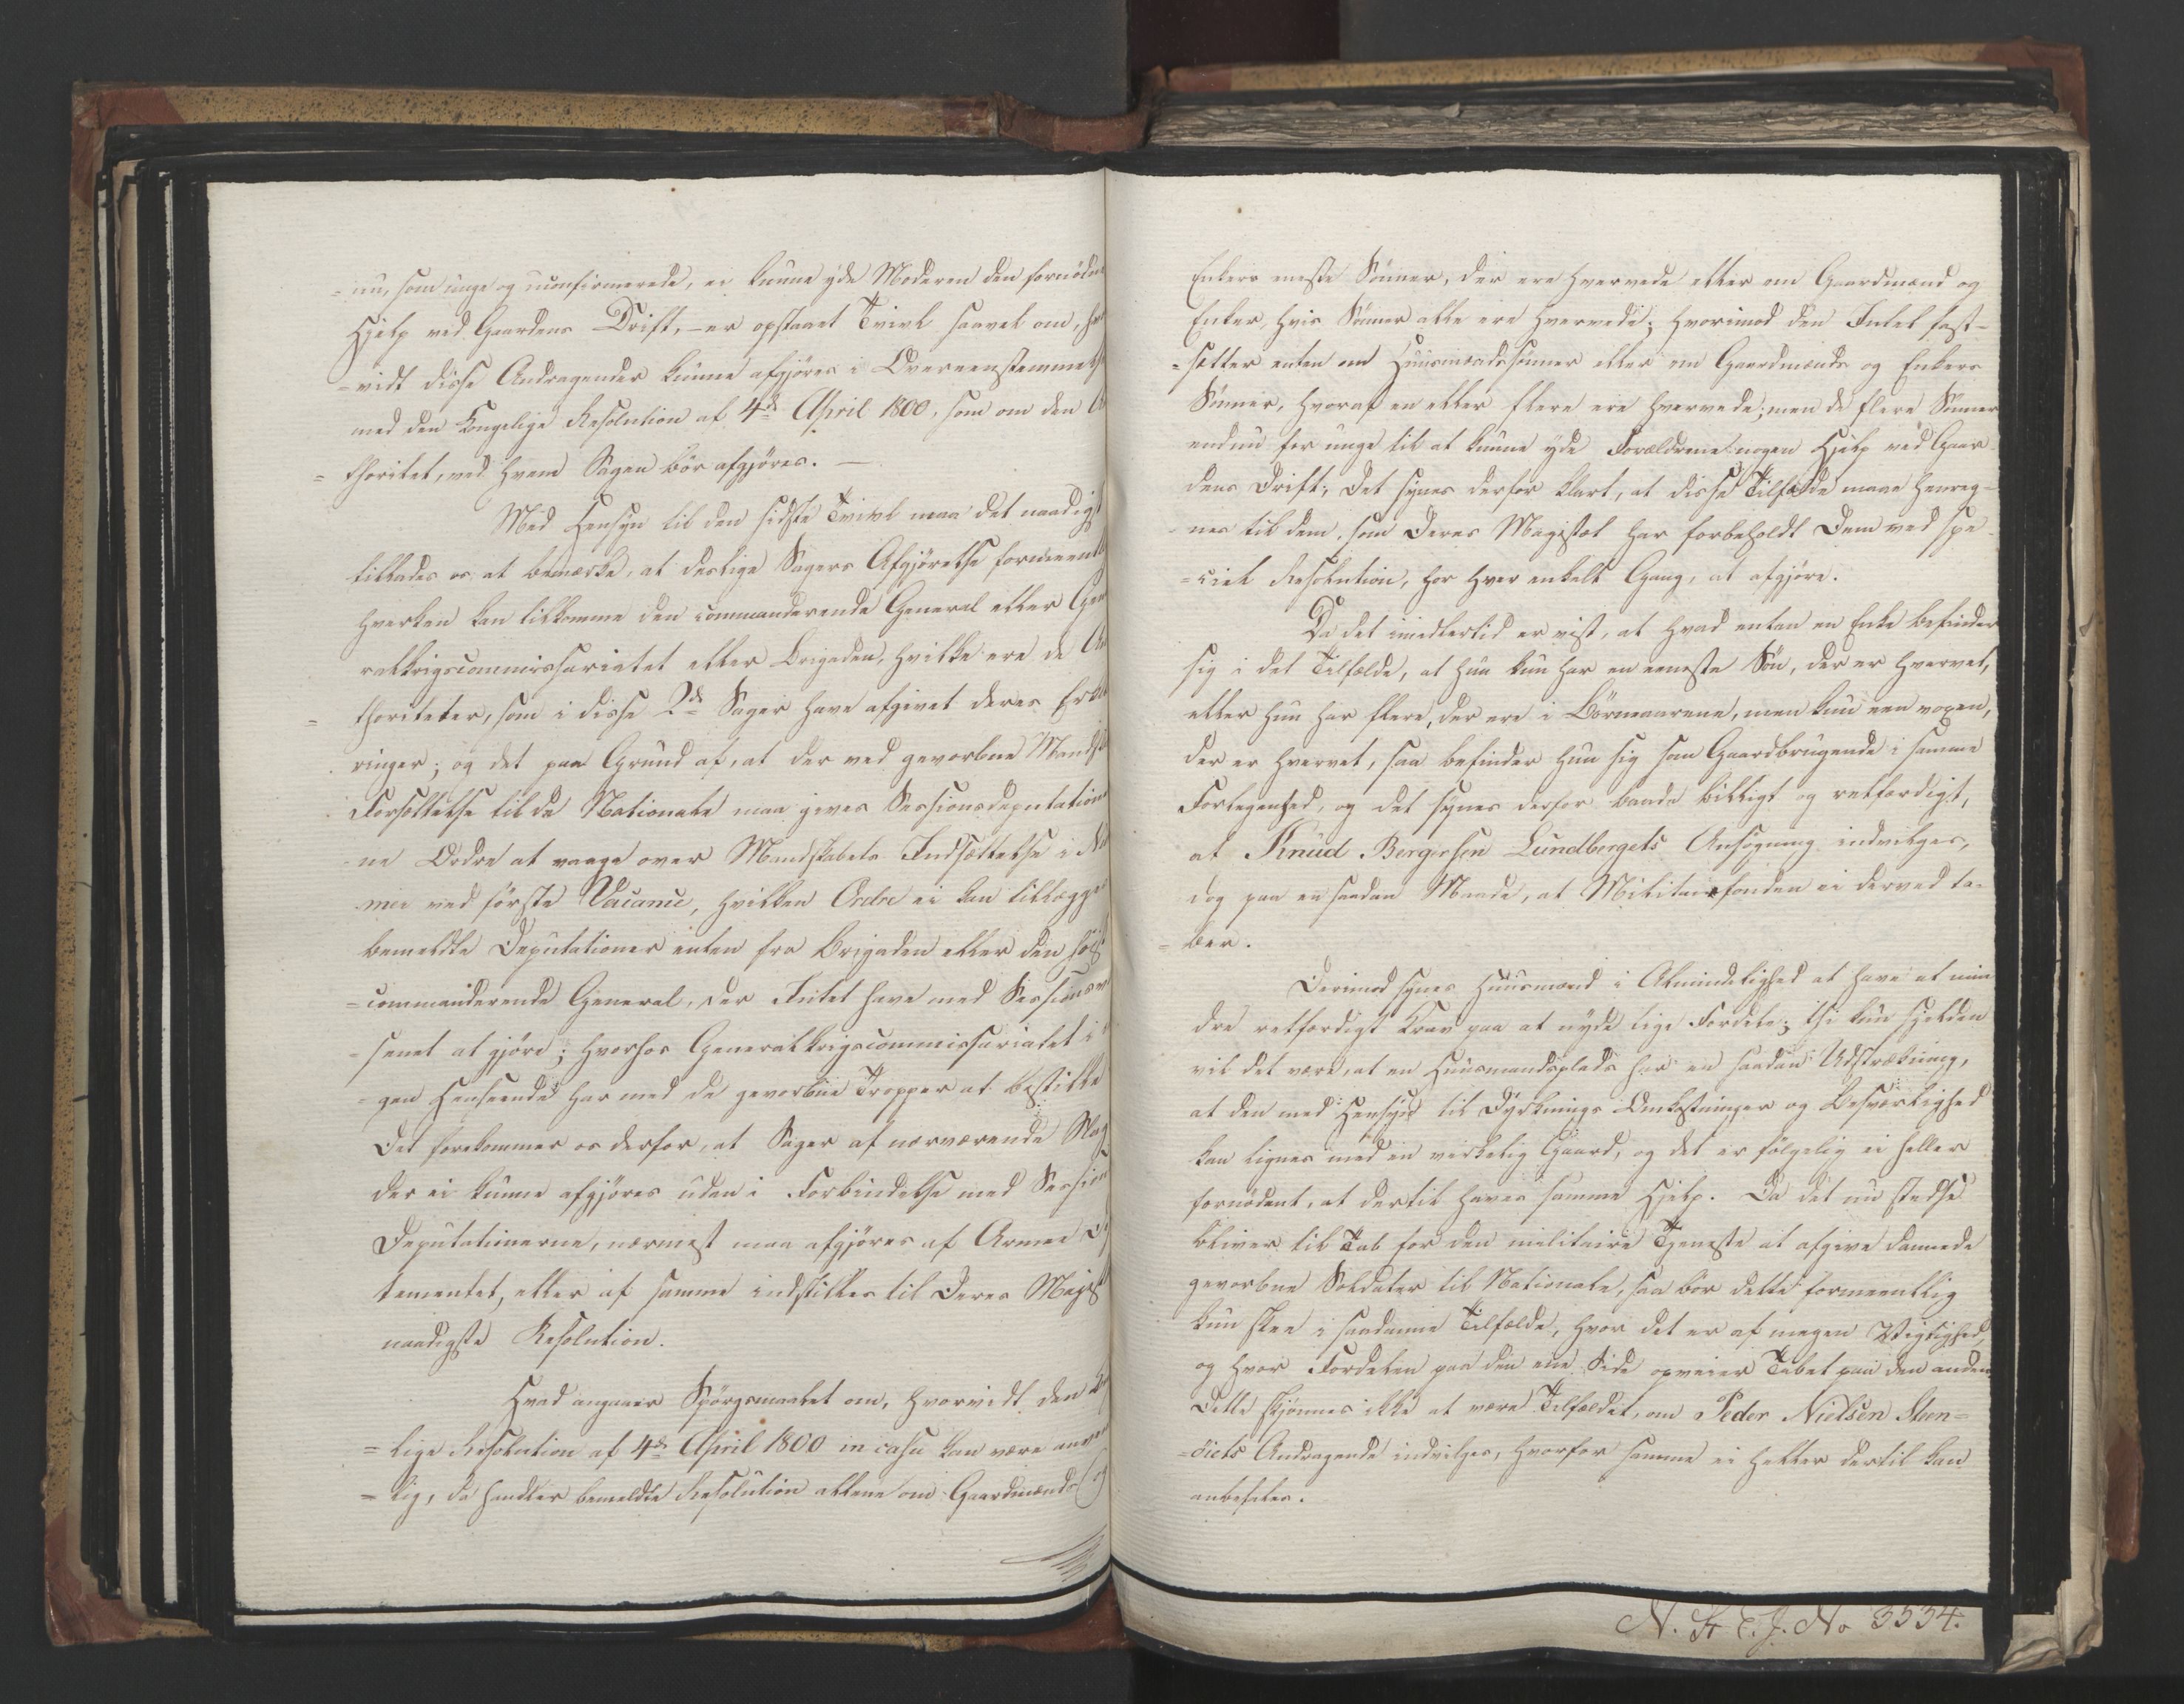 =nu, som unge og uconfirmerede, ei kunne yde Moderen den fornødne
Hjelp ved Gaardens Drift, – er opstaaet Tvivl saavel om, hvor
=vidt disse Andragender kunne afgjöres i Overeensstemmelse
med den Kongelige Resolution af 4de April 1800, som om den Au
=thoritet, ved hvem Sagen bör afgjöres. —
Med Hensyn til den sidste Tvivl maa det naadigst
tillades os at bemærke, at deslige Sagers Afgjörelse formeentlig
hverken kan tilkomme den commanderende General eller Gene
ralkrigscommissariatet eller Brigaden, hvilke ere de Au
=thoriteter, som i disse 2de Sager have afgivet deres Erklæ
ringer; og det paa Grund af, at der ved gevorbne Mandskabs
Forsættelse til de Nationale maa gives Sessionsdeputatione
=ne Ordre at vaage over Mandskabets Indsættelse i Num
mer ved förste Vacance, hvilken Ordre ei kan tillægges
bemeldte Deputationer enten fra Brigaden eller den höist
=commanderende General, der Intet have med Sessionsvæ
=senet at gjöre; hvorhos Generalkrigscommissariatet i
=gen Henseende har med de gevorbne Tropper at bestille
Det forekommer os derfor, at Sager af nærværende Slags
der ei kunne afgjöres uden i Forbindelse med Sessions
Deputationerne, nærmest maa afgjöres af Armee De
tementet, eller af samme indstilles til Deres Majestæts
naadigste Resolution.
Hvad angaaer Spörgsmaalet om, hvorvidt den Konge
=lige Resolution af 4de April 1800 in casu kan være anvende
=lig, da handler bemeldte Resolution allene om Gaardmænds og
Enkers eneste Sönner, der ere hvervede eller om Gaardmænd og
Enker, hvis Sönner alle ere hvervede; hvorimod den Intet fast=
=sætter enten om Huusmændssönner eller om Gaardmænds og Enkers
Sönner, hvoraf en eller flere ere hvervede; men de flere Sönner
endnu for unge til at kunne yde Forældrene nogen Hjelp ved Gaar
dens Drift; Det synes derfor klart, at disse Tilfælde maae henreg=
nes til dem, som Deres Majestæt har forbeholdt Dem ved spe
=ciel Resolution, for hver enkelt Gang, at afgjöre.
Da det imidlertid er vist, at hvad enten en Enke befinder
sig i det Tilfælde, at hun kun har en eeneste Sön, der er hvervet,
eller hun har flere, der ere i Börneaarene, men kun een voxen,
der er hvervet, saa befinder hun sig som Gaardbrugende i samme
Forlegenhed, og det synes derfor baade billigt og retfærdigt,
at Knud Bergersen Lundbergets Ansögning indvilges,
dog paa en saadan Maade, at Militairfonden ei derved ta=
=ber.
Derimod synes Huusmænd i Almindelighed at have et min
dre retfærdigt Krav paa at nyde lige Fordele; thi kun sjelden
vil det være, at en Huusmandsplads har en saadan Udstrækning,
at den med Hensyn til Dyrknings Omkostninger og Besværlighed
kan lignes med en virkelig Gaard, og det er fölgelig ei heller
fornödent, at dertil haves samme Hjelp. Da det nu stedse
bliver til Tab for den militaire Tjeneste at afgive dannede
gevorbne Soldater til Nationale, saa bör dette formeentlig
kun skee i saadanne Tilfælde, hvor det er af megen Vigtighed,
og hvor Fordelen paa den ene Side opveier Tabet paa den anden.
Dette skjönnes ikke at være Tilfældet, om Peder Nielsen Steen=
=öiets Andragende indvilges, hvorfor samme ei heller dertil kan
anbefales.
N. St C. J. No 3534.